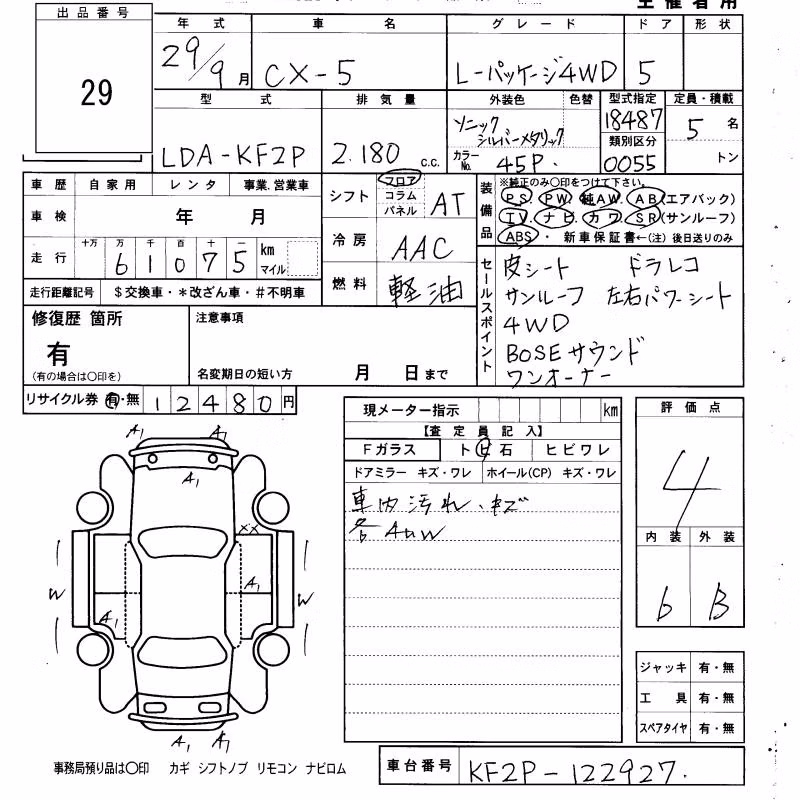 主催者用
出品番号
29
年式 車名 グレード ドア 形状
29/9月 CX-5 L-パッケージ4WD 5
型式 排気量 外装色 色替 型式指定 定員・積載
LDA-KF2P 2.180 c.c. ソニック シルバーメタリック 18487 5名
カラーNo. 45P. 類別区分 0055 トン
車歴 自家用 レンタ 事業.営業車
車検 年 月
走行 十万 万 千 百 十 一 km マイル
6 1 0 7 5
走行距離記号 $交換車・*改ざん車・#不明車
シフト フロア コラム パネル AT
冷房 AAC
燃料 軽油
装備品 ※純正のみ〇印をつけて下さい。
PS PW 純AW AB(エアバック)
TV ナビ カワ SR(サンルーフ)
ABS・新車保証書←(注)後日送りのみ
セールスポイント
皮シート ドラレコ
サンルーフ 左右パワーシート
4WD
BOSEサウンド
ワンオーナー
修復歴 箇所
有
(有の場合は〇印を)
注意事項
名変期日の短い方 月 日まで
リサイクル券 有・無 12480円
現メーター指示 km
【査定員記入】
Fガラス トビ石 ヒビワレ
ドアミラー キズ・ワレ ホイール(CP) キズ・ワレ
車内汚れ、キズ
各AUW
評価点
4
内装 外装
6 B
A1 A1
A1
XX
W A1 W
A1
A1 A1
ジャッキ 有・無
工具 有・無
スペアタイヤ 有・無
事務局預り品は〇印 カギ シフトノブ リモコン ナビロム
車台番号 KF2P-122927.